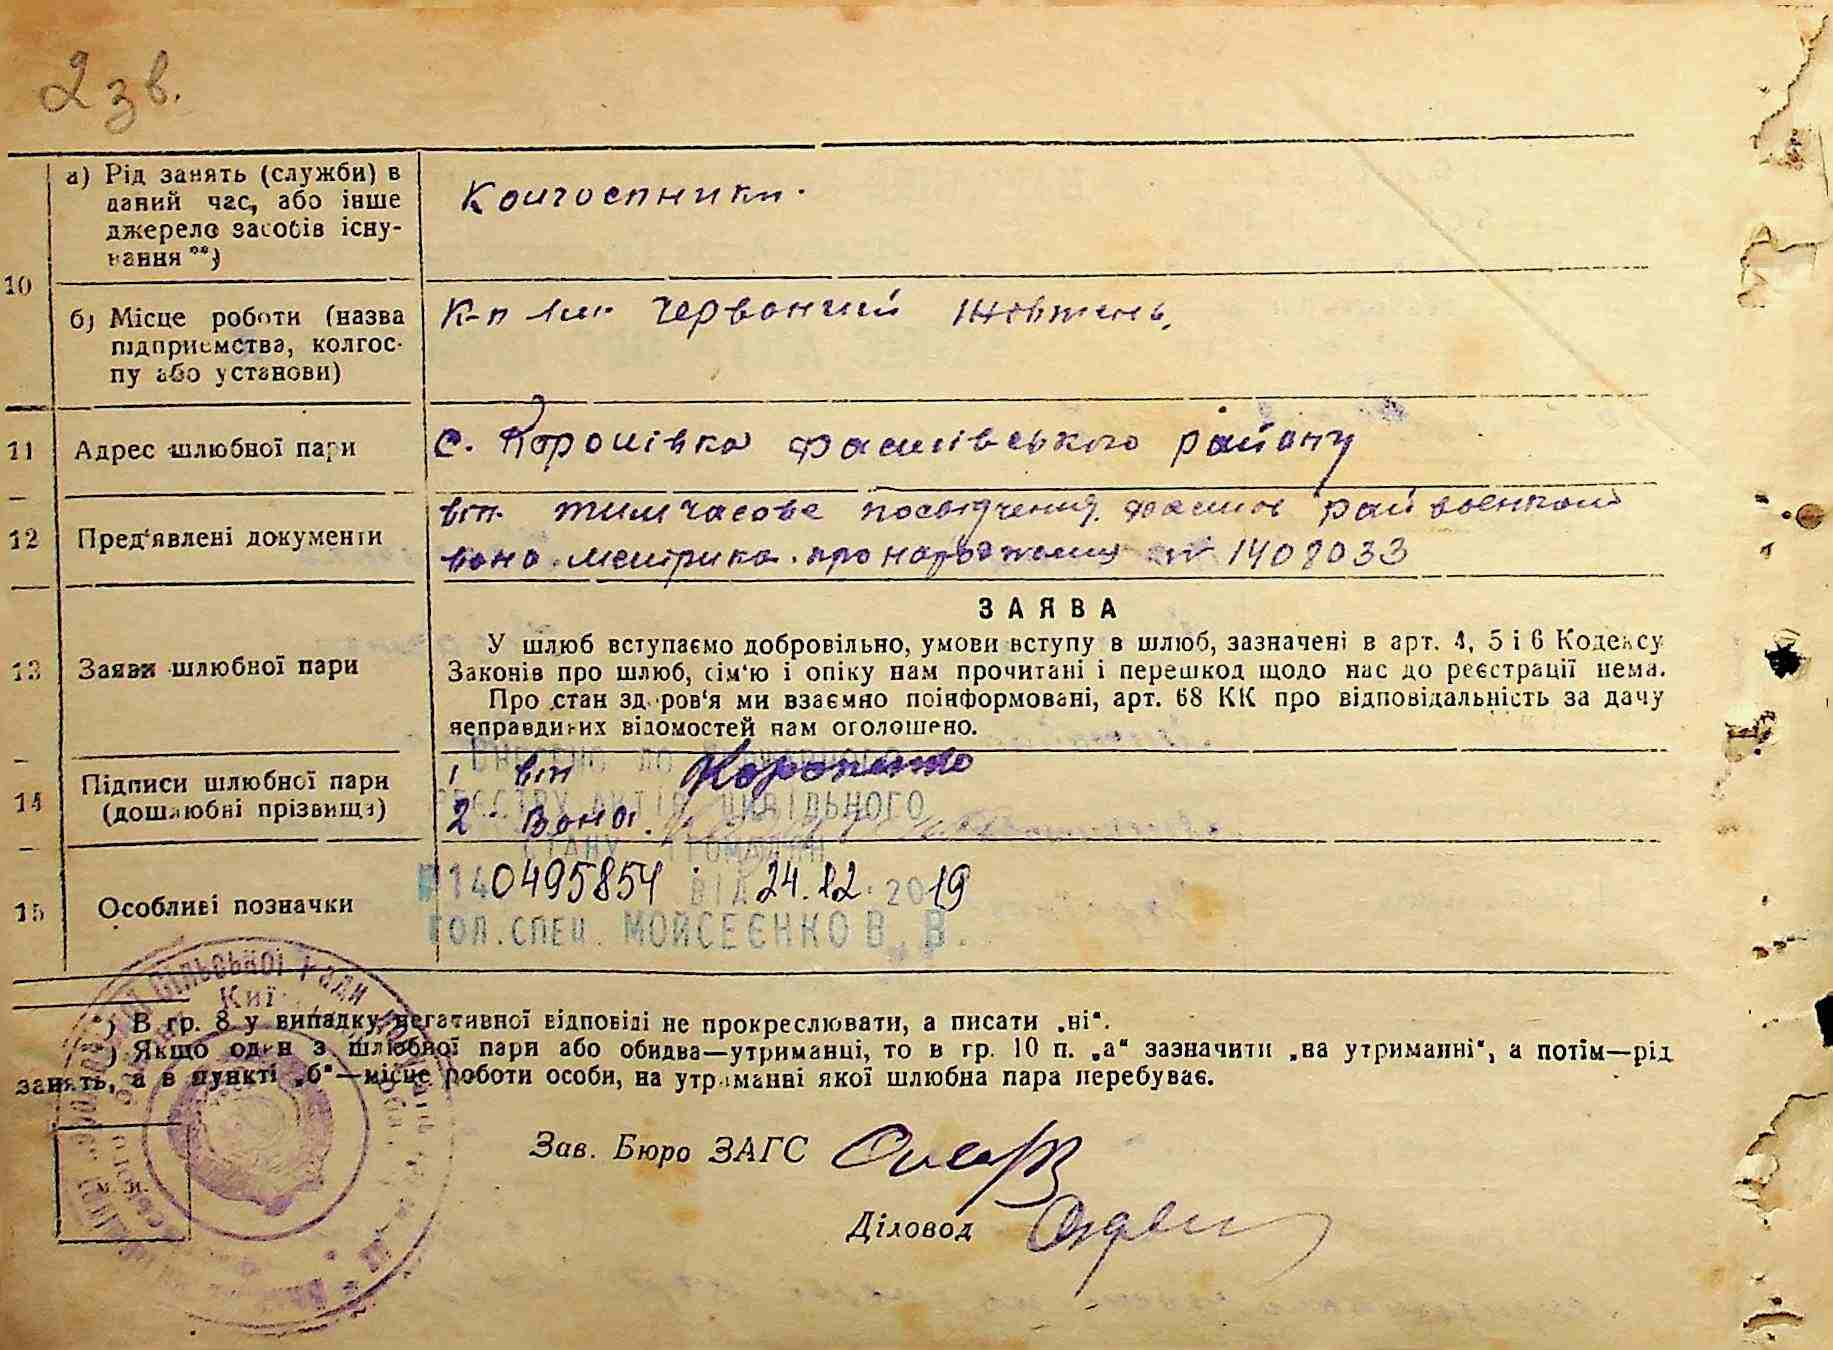 2 зв.
10
а) Рід занять (служби) в
даний час, або інше
джерело засобів існу-
вання **)
Колгоспники.
б) Місце роботи (назва
підприємства, колгос-
пу або установи)
К-п ім. Червоний Жовтень.
11
Адрес шлюбної пари
с. Королівка Фастівського району
12
Пред‘явлені документи
він. тимчасове посвідчення
вона. метрика. про народження № 1408033
13
Заяви шлюбної пари
ЗАЯВА
У шлюб вступаємо добровільно, умови вступу в шлюб, зазначені в арт. 4, 5 і 6 Кодексу
Законів про шлюб, сім‘ю і опіку нам прочитані і перешкод щодо нас до реєстрації нема.
Про стан здоров‘я ми взаємно поінформовані, арт. 68 КК про відповідальність за дачу
неправдивих відомостей нам оголошено.
14
Підписи шлюбної пари
(дошлюбні прізвища)
1 він
2 Вона.
ВНЕСЕНО ДО ДЕРЖАВНОГО
РЕЄСТРУ АКТІВ ЦИВІЛЬНОГО
СТАНУ ГРОМАДЯН
15
Особливі позначки
№ 140495854 ВІД 24.12.2019
ГОЛ. СПЕЦ. МОЙСЕЄНКО В. В.
*) В гр. 8 у випадку негативної відповіді не прокреслювати, а писати „ні“.
**) Якщо один з шлюбної пари або обидва—утриманці, то в гр. 10 п. „а“ зазначити „на утриманні“, а потім—рід
занять, а в пункті „б“—місце роботи особи, на утриманні якої шлюбна пара перебуває.
сільської Ради
м. п.
Зав. Бюро ЗАГС
Діловод